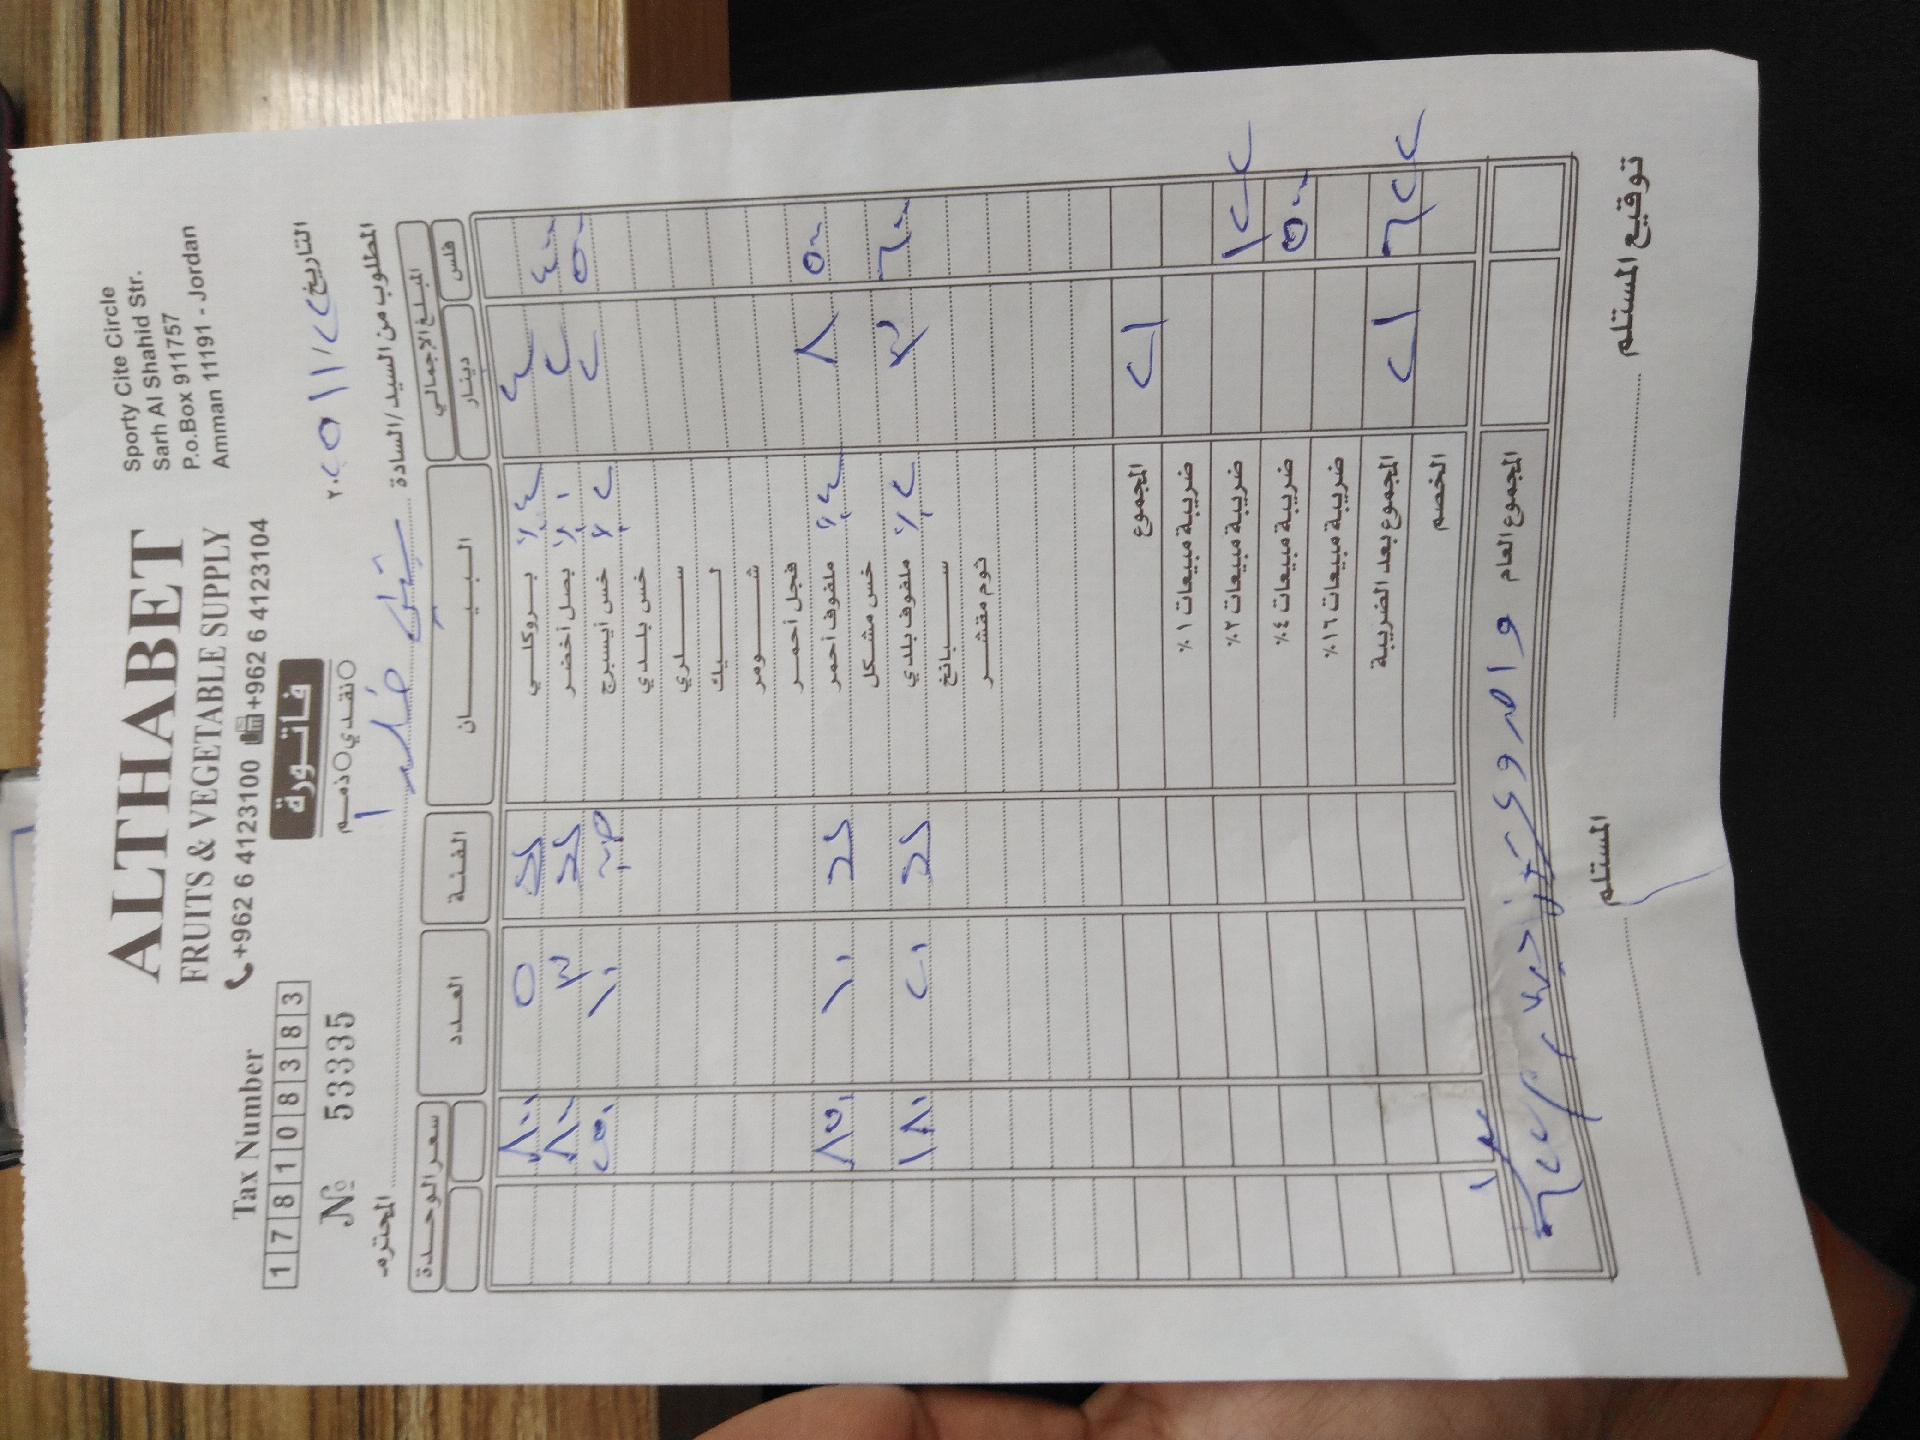 ALTHABET
FRUITS & VEGETABLE SUPPLY
+962 6 4123100 +962 6 4123104
Sporty Cite Circle
Sarh Al Shahid Str.
P.o.Box 911757
Amman 11191 - Jordan
Tax Number
178108383
№ 53335
فاتورة
نقدي ذمم
التاريخ ٢٢ / ١١ / ٢٠٢٥
المطلوب من السيد / السادة المحترم
المبلغ الإجمالي البيــــان الفئة العدد سعر الوحدة
دينار فلس
بروكلي ٤٪ ٤ كغ ٥ ٨٠٠
بصل أخضر ١٠٪ ٢ ٤٠٠ كغ ٣ ٨٠٠
خس أيسبرج ٢٪ ٢ ٥٠٠ ١٠ ٢٥٠
خس بلدي
سلري
ليك
شومر
فجل أحمر
ملفوف أحمر ٤٪ ٨ ٥٠٠ كغ ١٠ ٨٥٠
خس مشكل
ملفوف بلدي ٢٪ ٣ ٦٠٠ كغ ٢٠ ١٨٠
سبانخ
ثوم مقشر
المجموع ٢١
ضريبة مبيعات ١٪
ضريبة مبيعات ٢٪ ١٢٢
ضريبة مبيعات ٤٪ ٥٠٠
ضريبة مبيعات ١٦٪
المجموع بعد الضريبة ٢١ ٦٢٢
الخصم
المجموع العام
المستلم توقيع المستلم